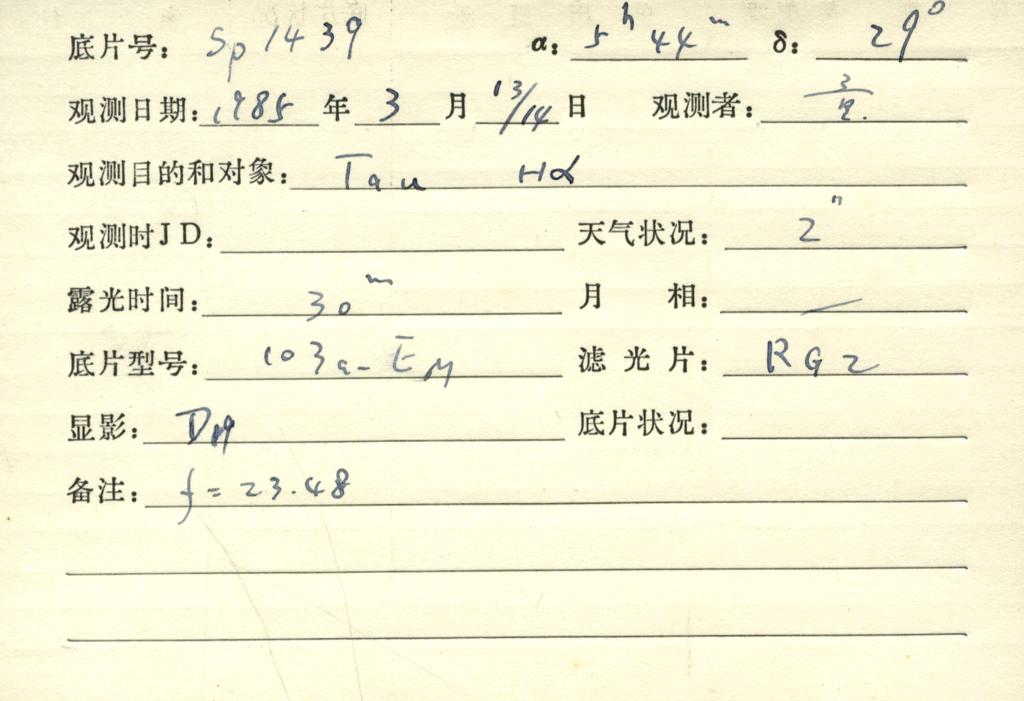 底片号: Sp1439 α: 5ʰ 44ᵐ δ: 29⁰
观测日期: 1985 年 3 月 13/14 日 观测者:
观测目的和对象: Tau Hα
观测时JD: 天气状况: 2"
露光时间: 30ᵐ 月 相: —
底片型号: 103a-E 滤光片: RG2
显影: D19 底片状况:
备注: f=23.48